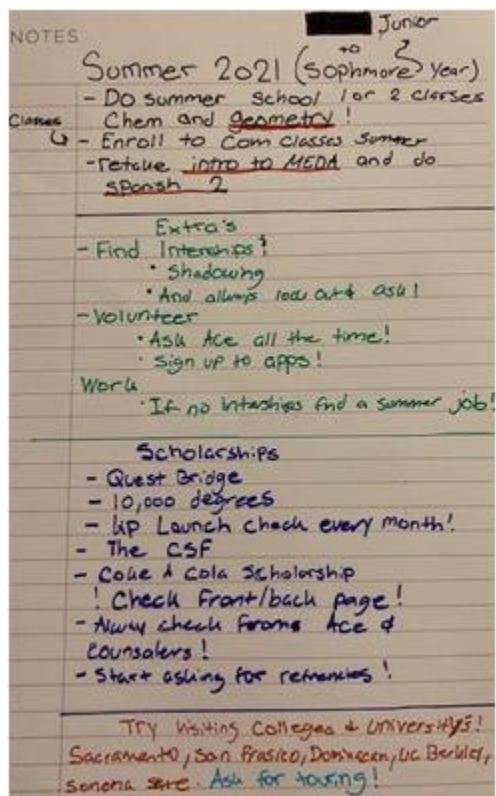 NOTES
Junior
to
Summer 2021 (Sophmore Year)
- Do summer school 1 or 2 classes
Classes Chem and geometry!
- Enroll to Com classes Summer
- retake intro to MEDA and do
spanish 2
Extra's
- Find Interships!
• Shadowing
• And always look out & ask!
- Volunteer
• Ask Ace all the time!
• Sign up to apps!
Work
• If no Interships find a summer job!
Scholarships
- Quest Bridge
- 10,000 degrees
- Up Launch check every month!
- The CSF
- Coke A Cola Scholarship
! Check Front/back page!
- Alway check Ace &
Counsalers!
- Start asking for refrencies!
Try Visiting Colleges & Universitys!
Sacramento, San Frasico, Dominican, UC Berkley,
Sonoma. Ask for touring!